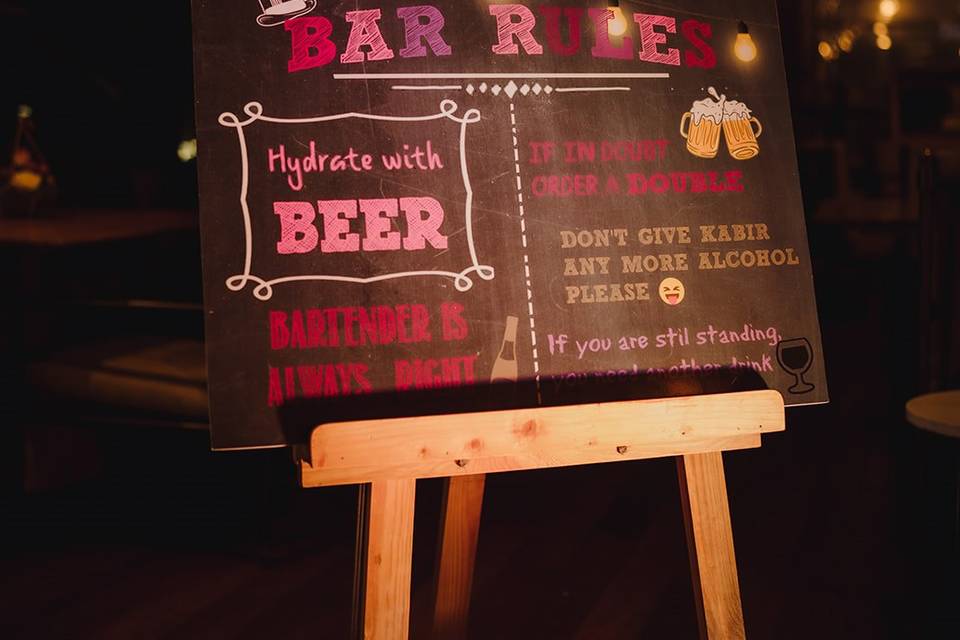 BAR RULES
Hydrate with
BEER
BARTENDER IS
ALWAYS RIGHT
IF IN DOUBT
ORDER A DOUBLE
DON'T GIVE KABIR
ANY MORE ALCOHOL
PLEASE 😝
If you are stil standing,
you need another drink